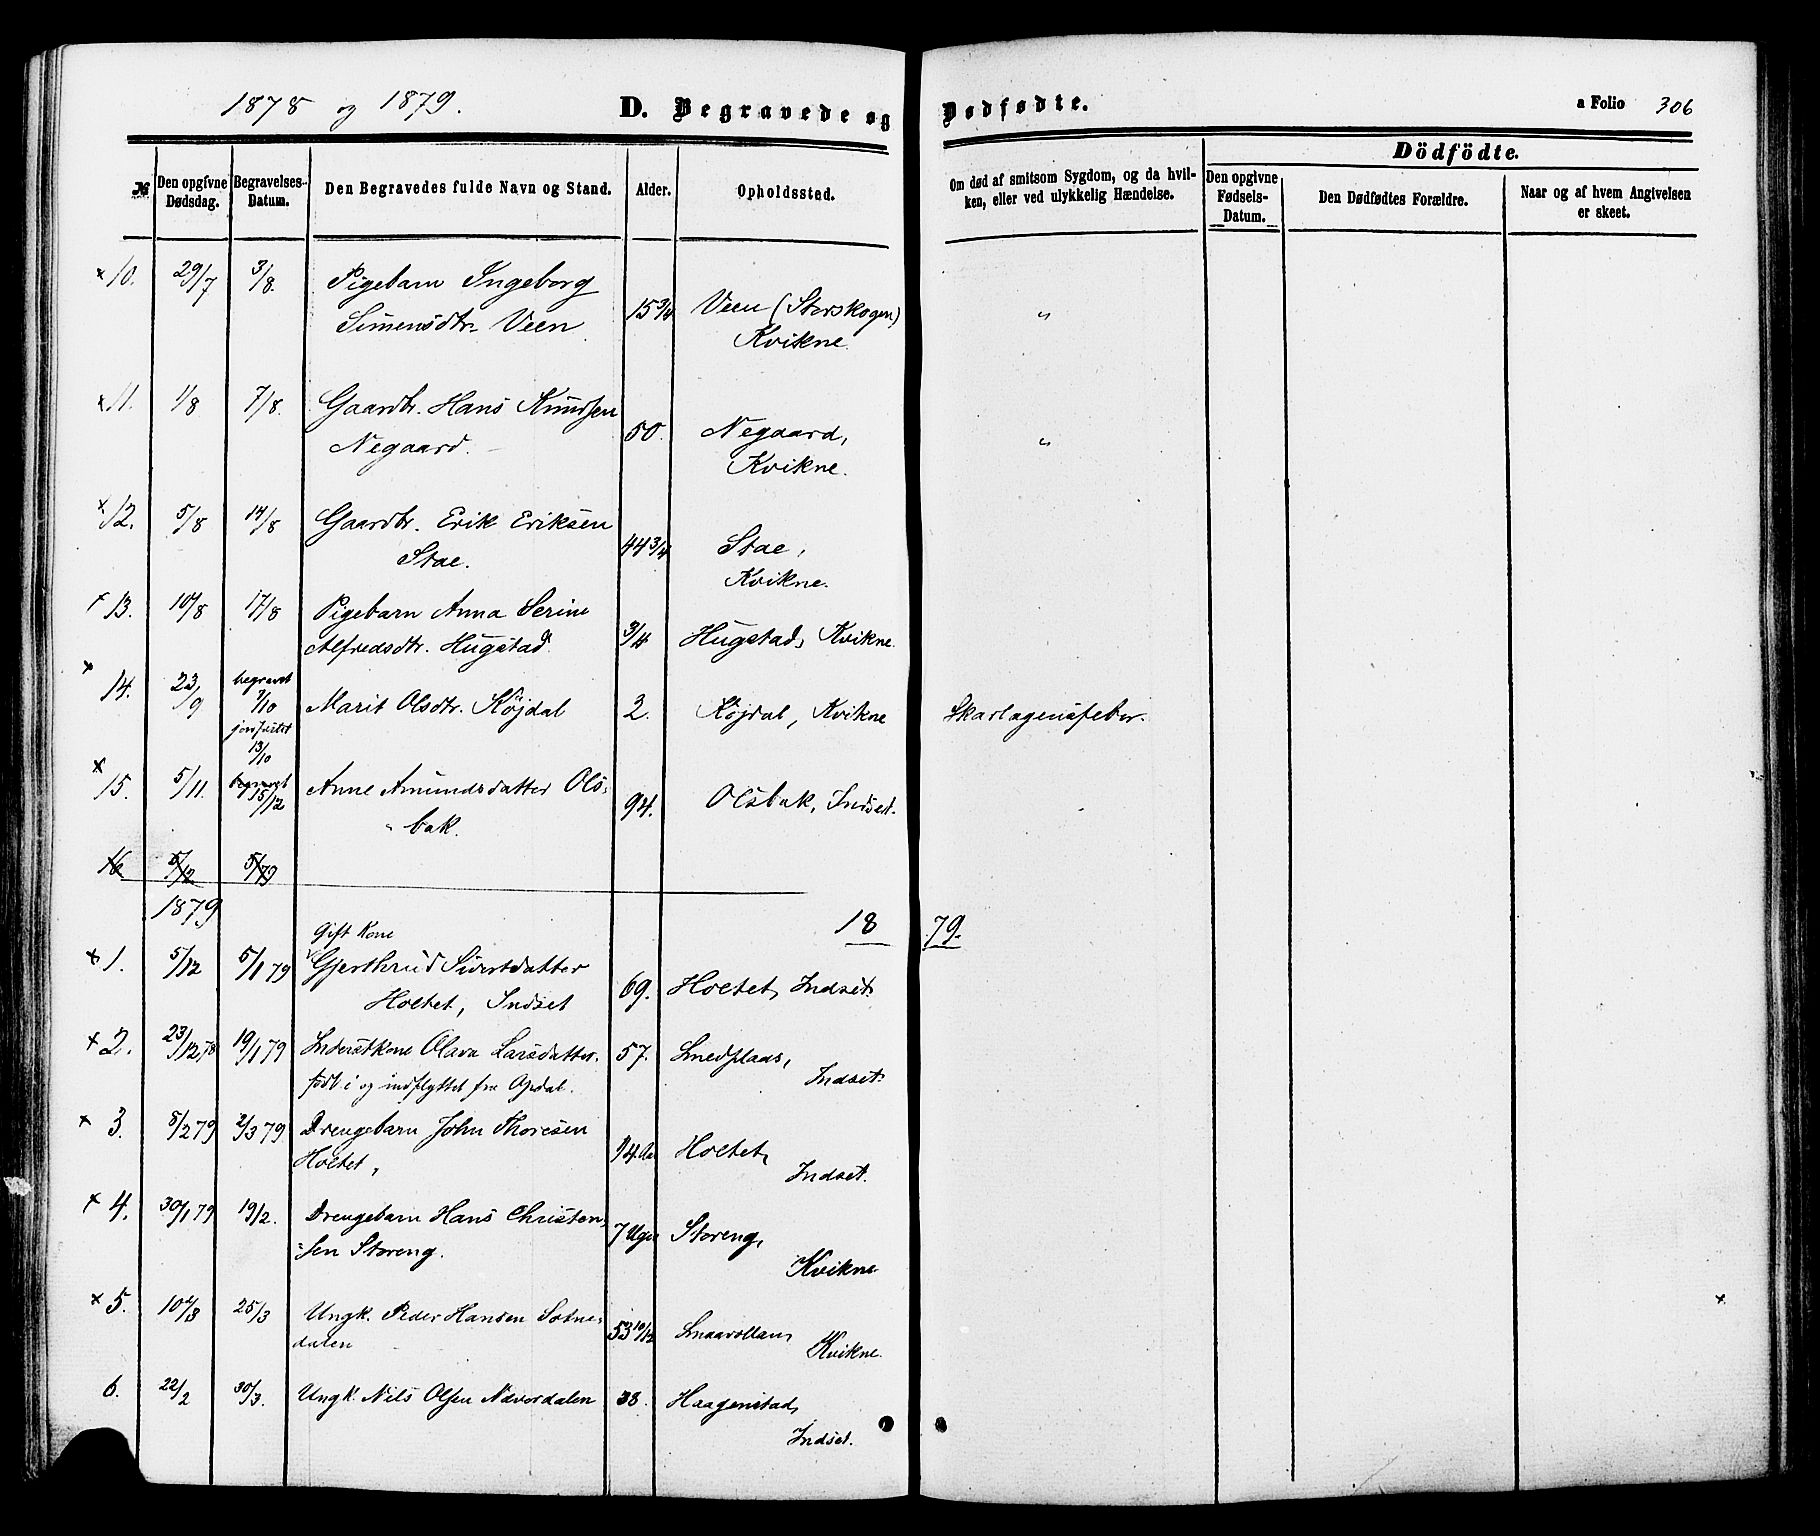 1878 og 1879.
D. Begravede og Dødfødte.
a Folio 306
№
Den opgivne Dødsdag.
Begravelses-Datum.
Den Begravedes fulde Navn og Stand.
Alder.
Opholdssted.
Om død af smitsom Sygdom, og da hvilken, eller ved ulykkelig Hændelse.
Dödfödte.
Den opgivne Fødsels-Datum.
Den Dødfødtes Forældre.
Naar og af hvem Angivelsen er skeet.
× 10. 29/7 3/8. Pigebarn Ingeborg
Simensdtr. Veen 15 3/4 Veen (Storskogen)
Kvikne. "
× 11. 1/8 7/8. Gaardbr. Hans Knudsen
Negaard. 50. Negaard,
Kvikne. "
× 12. 5/8 14/8 Gaardbr. Erik Eriksen
Stae. 44 3/4 Stae,
Kvikne.
× 13. 10/8 17/8 Pigebarn Anna Serine
Alfredsdtr. Hugstad. 3/4 Hugstad, Kvikne.
× 14. 23/9 begravet
7/10 Marit Olsdtr. Köjdal 2. Köjdal, Kvikne Skarlagensfeber.
jordfæstet
13/10
× 15. 5/11. begravet
15/12 Anne Amundsdatter Ols-
bak. 94. Olsbak, Indset.
16 5/12 5/79
1879
18 79.
Gift Kone
× 1. 5/12 5/1 79 Gjerthrud Sivertdatter
Holtet, Indset 69. Holtet, Indset.
× 2. 23/12 78 19/1 79 Inderstkone Olava Larsdatter. 57. Smedplads,
født i og indflyttet fra Opdal. Indset.
× 3. 8/2 79 2/3 79 Drengebarn John Thoresen
Holtet, Holtet,
Indset.
× 4. 30/1 79 19/2. Drengebarn Hans Christen-
sen Storeng. 7 Uger Storeng,
Kvikne
× 5. 25/3 Ungk. Peder Hansen Sotne-
dalen 53 10/12 Smaavollan,
Kvikne.
6. 22/2 30/3. Ungk. Nils Olsen Næverdalen 38. Haagenstad,
Indset.
×